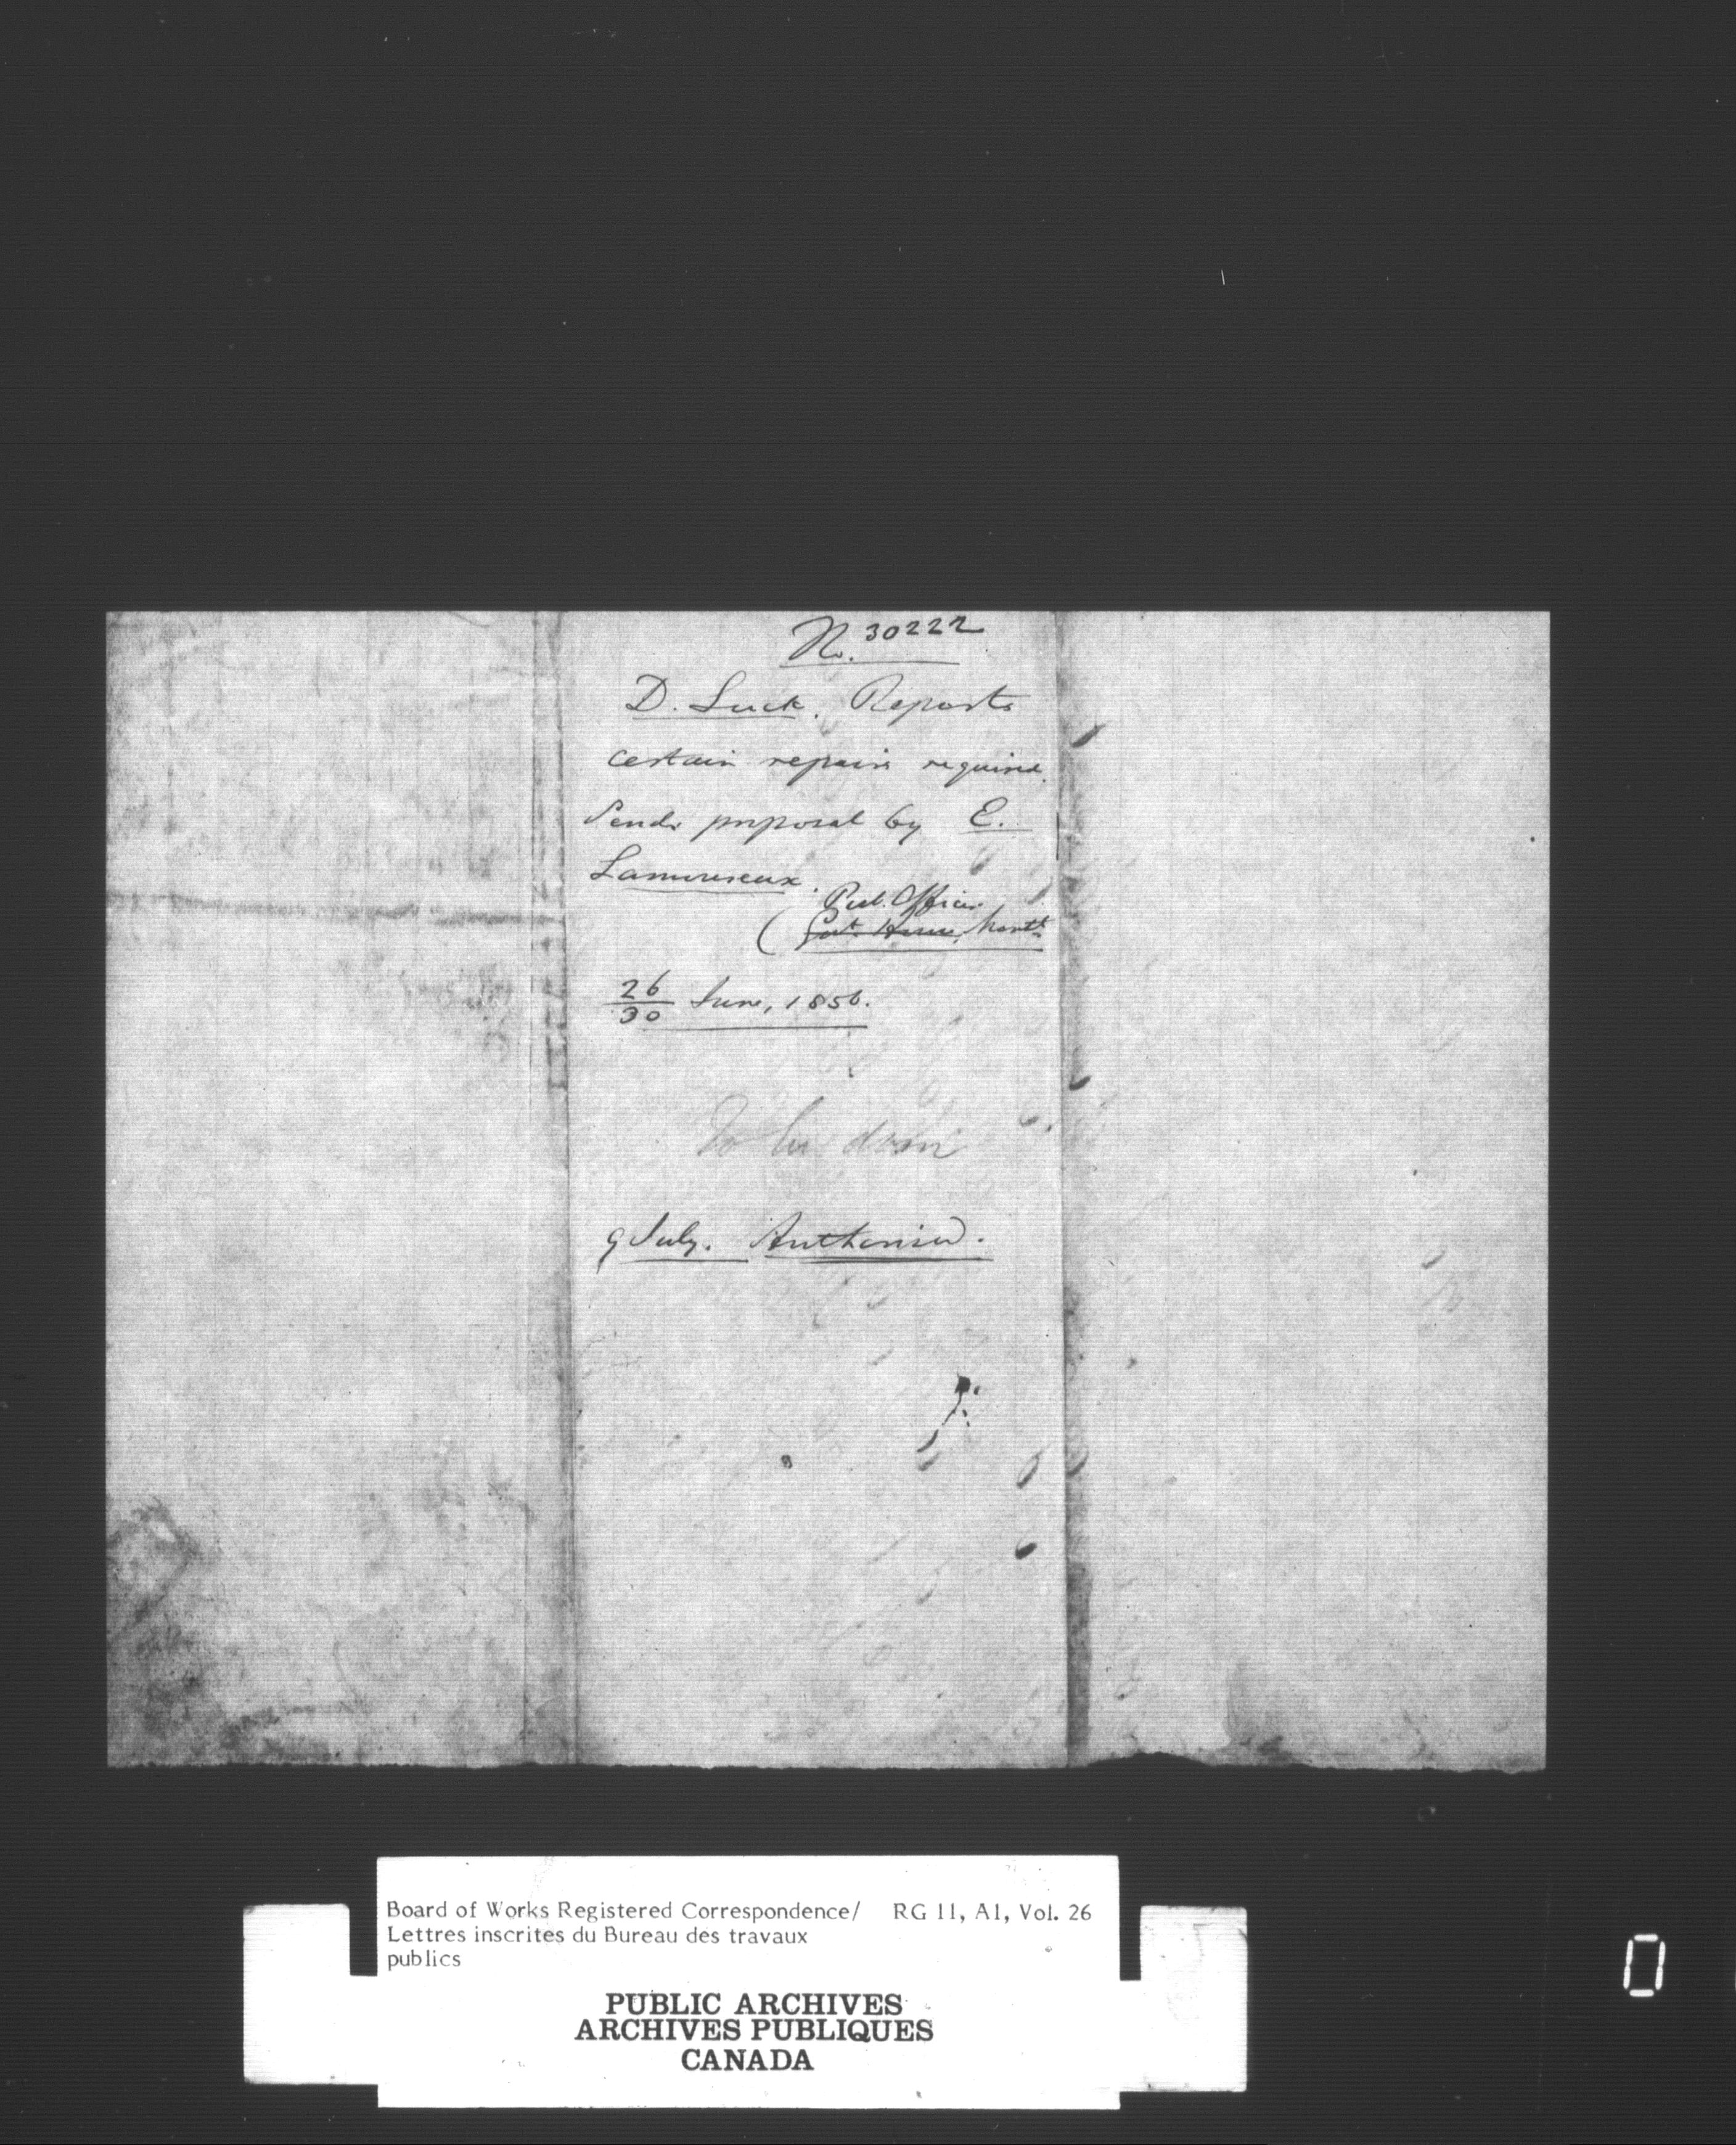 No. 30222
D. Luck. Reports
certain repairs required.
Sends proposal by E.
Lamoureux.
Pub. Offices
( Govt. House, Montl.
26/30 June, 1856.
To be done
9 July. Authorised.
Board of Works Registered Correspondence/ RG 11, A1, Vol. 26
Lettres inscrites du Bureau des travaux
publics
PUBLIC ARCHIVES
ARCHIVES PUBLIQUES
CANADA
0